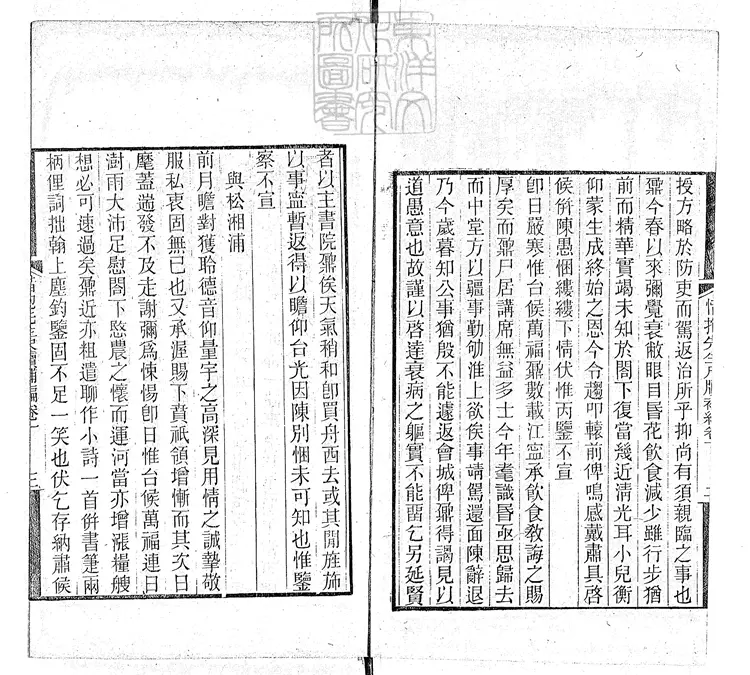 東洋文
化研究
所圖書
授方略於防吏而駕返治所乎抑尚有須親臨之事也
鼐今春以來彌覺衰敝眼目昏花飲食減少雖行步猶
前而精華實竭未知於閤下復當幾近淸光耳小兒衡
仰蒙生成終始之恩今令趨叩轅前俾鳴感戴肅具啓
候倂陳愚悃縷縷下情伏惟丙鑒不宣
卽日嚴寒惟台候萬福鼐數載江寍承飲食敎誨之賜
厚矣而鼐尸居講席無益多士今年耄識昬亟思歸去
而中堂方以疆事勤劬淮上欲俟事靖駕還面陳辭退
乃今歲暮知公事猶殷不能遽返會城俾鼐得謁見以
道愚意也故謹以啓達衰病之軀實不能畱乞另延賢
者以主書院鼐俟天氣稍和卽買舟西去或其閒旌斾
以事寍暫返得以瞻仰台光因陳別悃未可知也惟鑒
察不宣
與松湘浦
前月瞻對獲聆德音仰量宇之高深見用情之誠摯敬
服私衷固無已也又承渥賜下賁祇領增慚而其次日
麾蓋遄發不及走謝彌爲悚惕卽日惟台候萬福連日
澍雨大沛足慰閤下愍農之懷而運河當亦增漲糧艘
想必可速過矣鼐近亦粗遣聊作小詩一首倂書箑兩
柄俚詞拙翰上塵鈞鑒固不足一笑也伏乞存納肅候